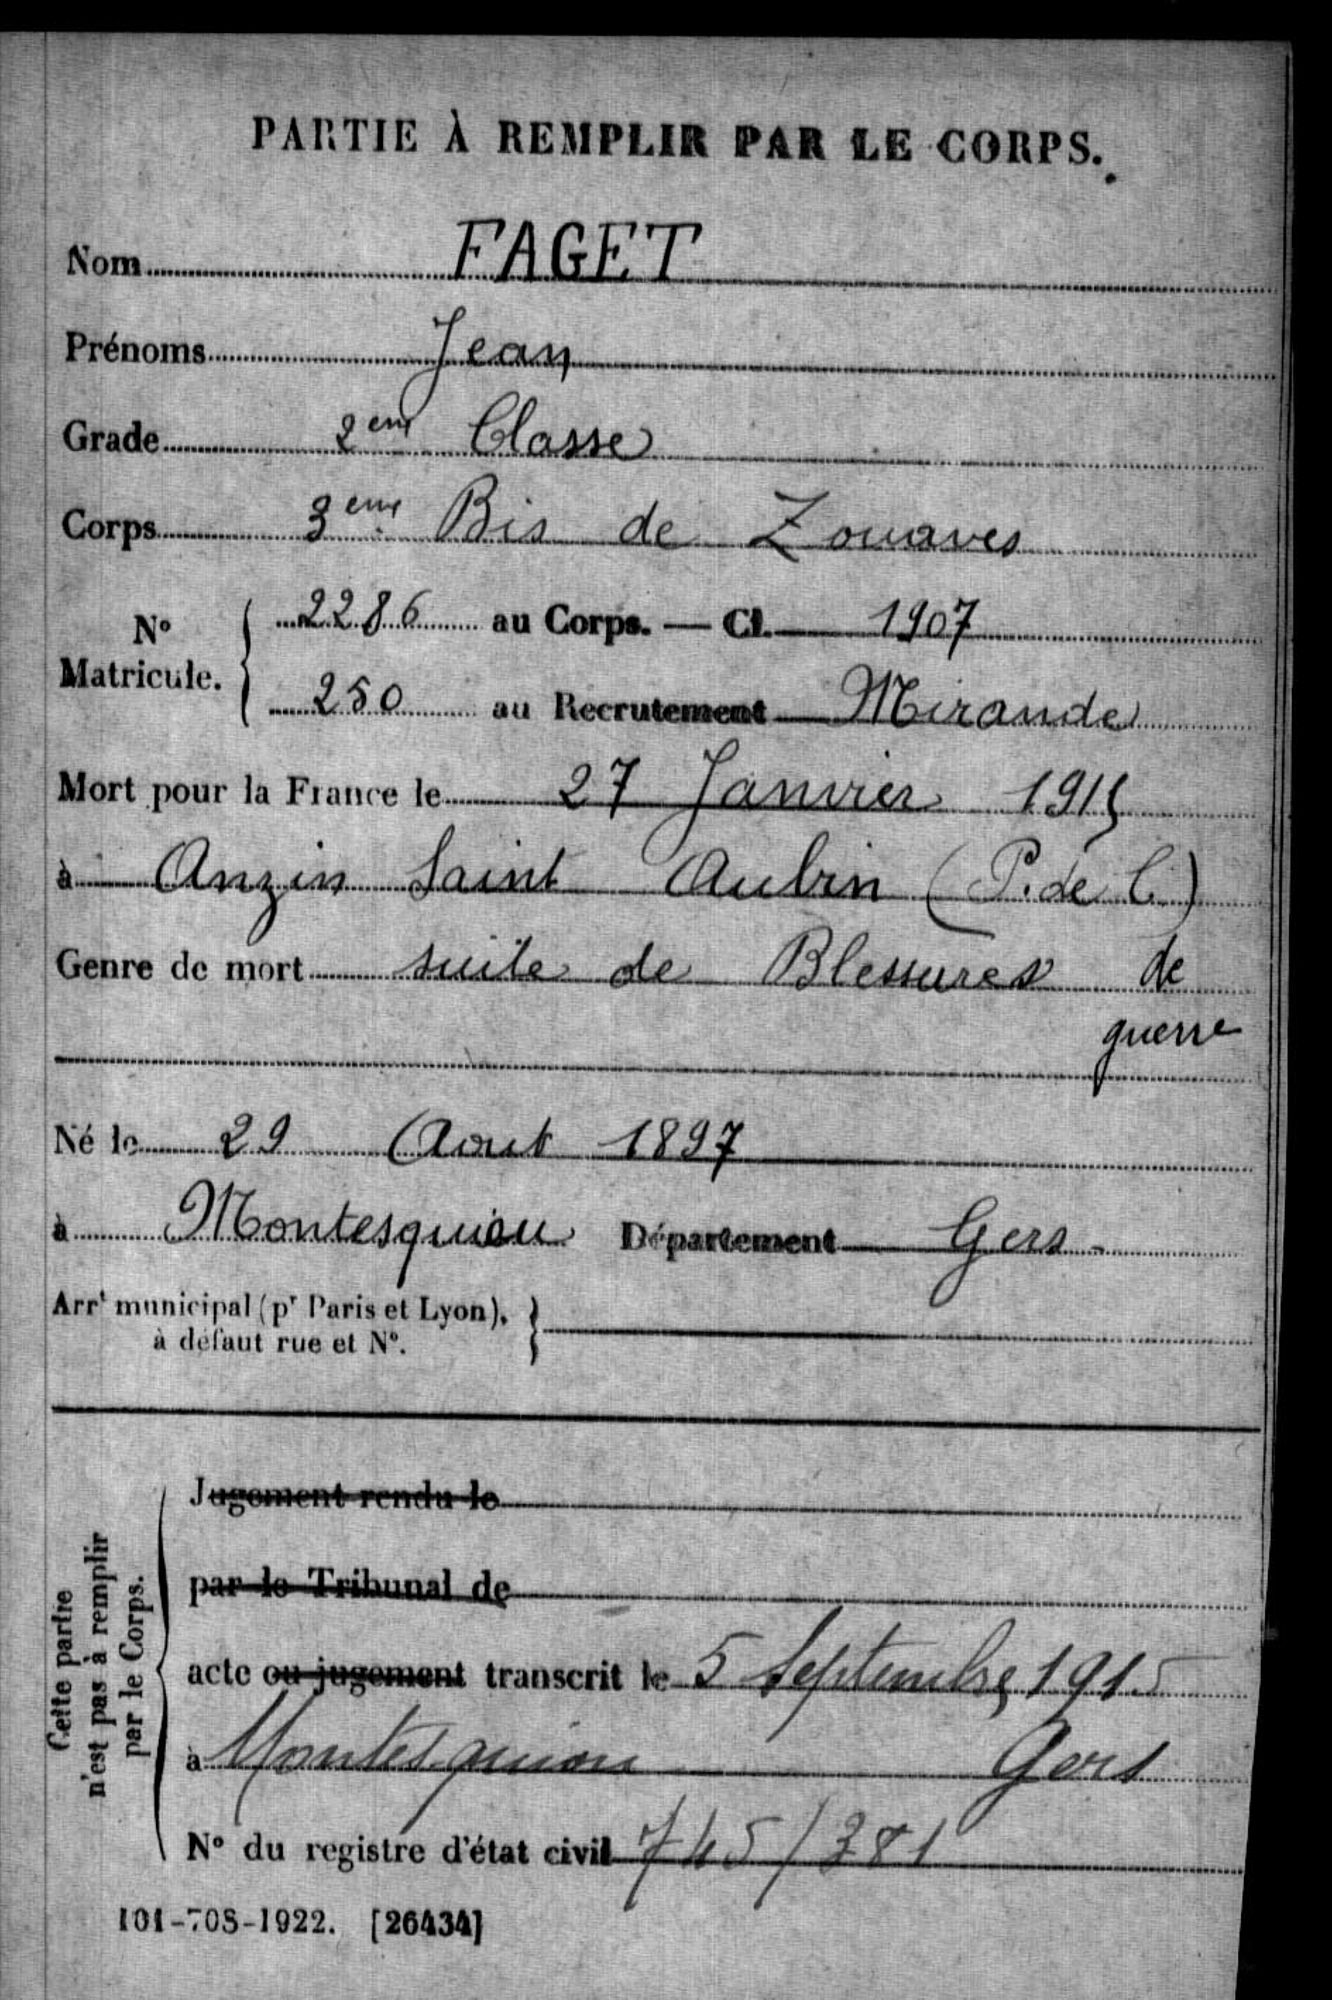 PARTIE À REMPLIR PAR LE CORPS.
Nom FAGET
Prénoms Jean
Grade 2eme Classe
Corps 3eme Bis de Zouaves
N° Matricule. 2286 au Corps. — Cl. 1907
250 au Recrutement Mirande
Mort pour la France le 27 Janvier 1915
à Anzin Saint Aubin (P. de C.)
Genre de mort suite de Blessures de
guerre
Né le 29 Aout 1897
à Montesquiou Département Gers
Arrt municipal (pr Paris et Lyon),
à défaut rue et N°.
Cette partie
n'est pas à remplir
par le Corps.
Jugement rendu le
par le Tribunal de
acte ou jugement transcrit le 5 Septembre 1915
à Montesquiou Gers
N° du registre d'état civil 745/381
101-708-1922. [26434]